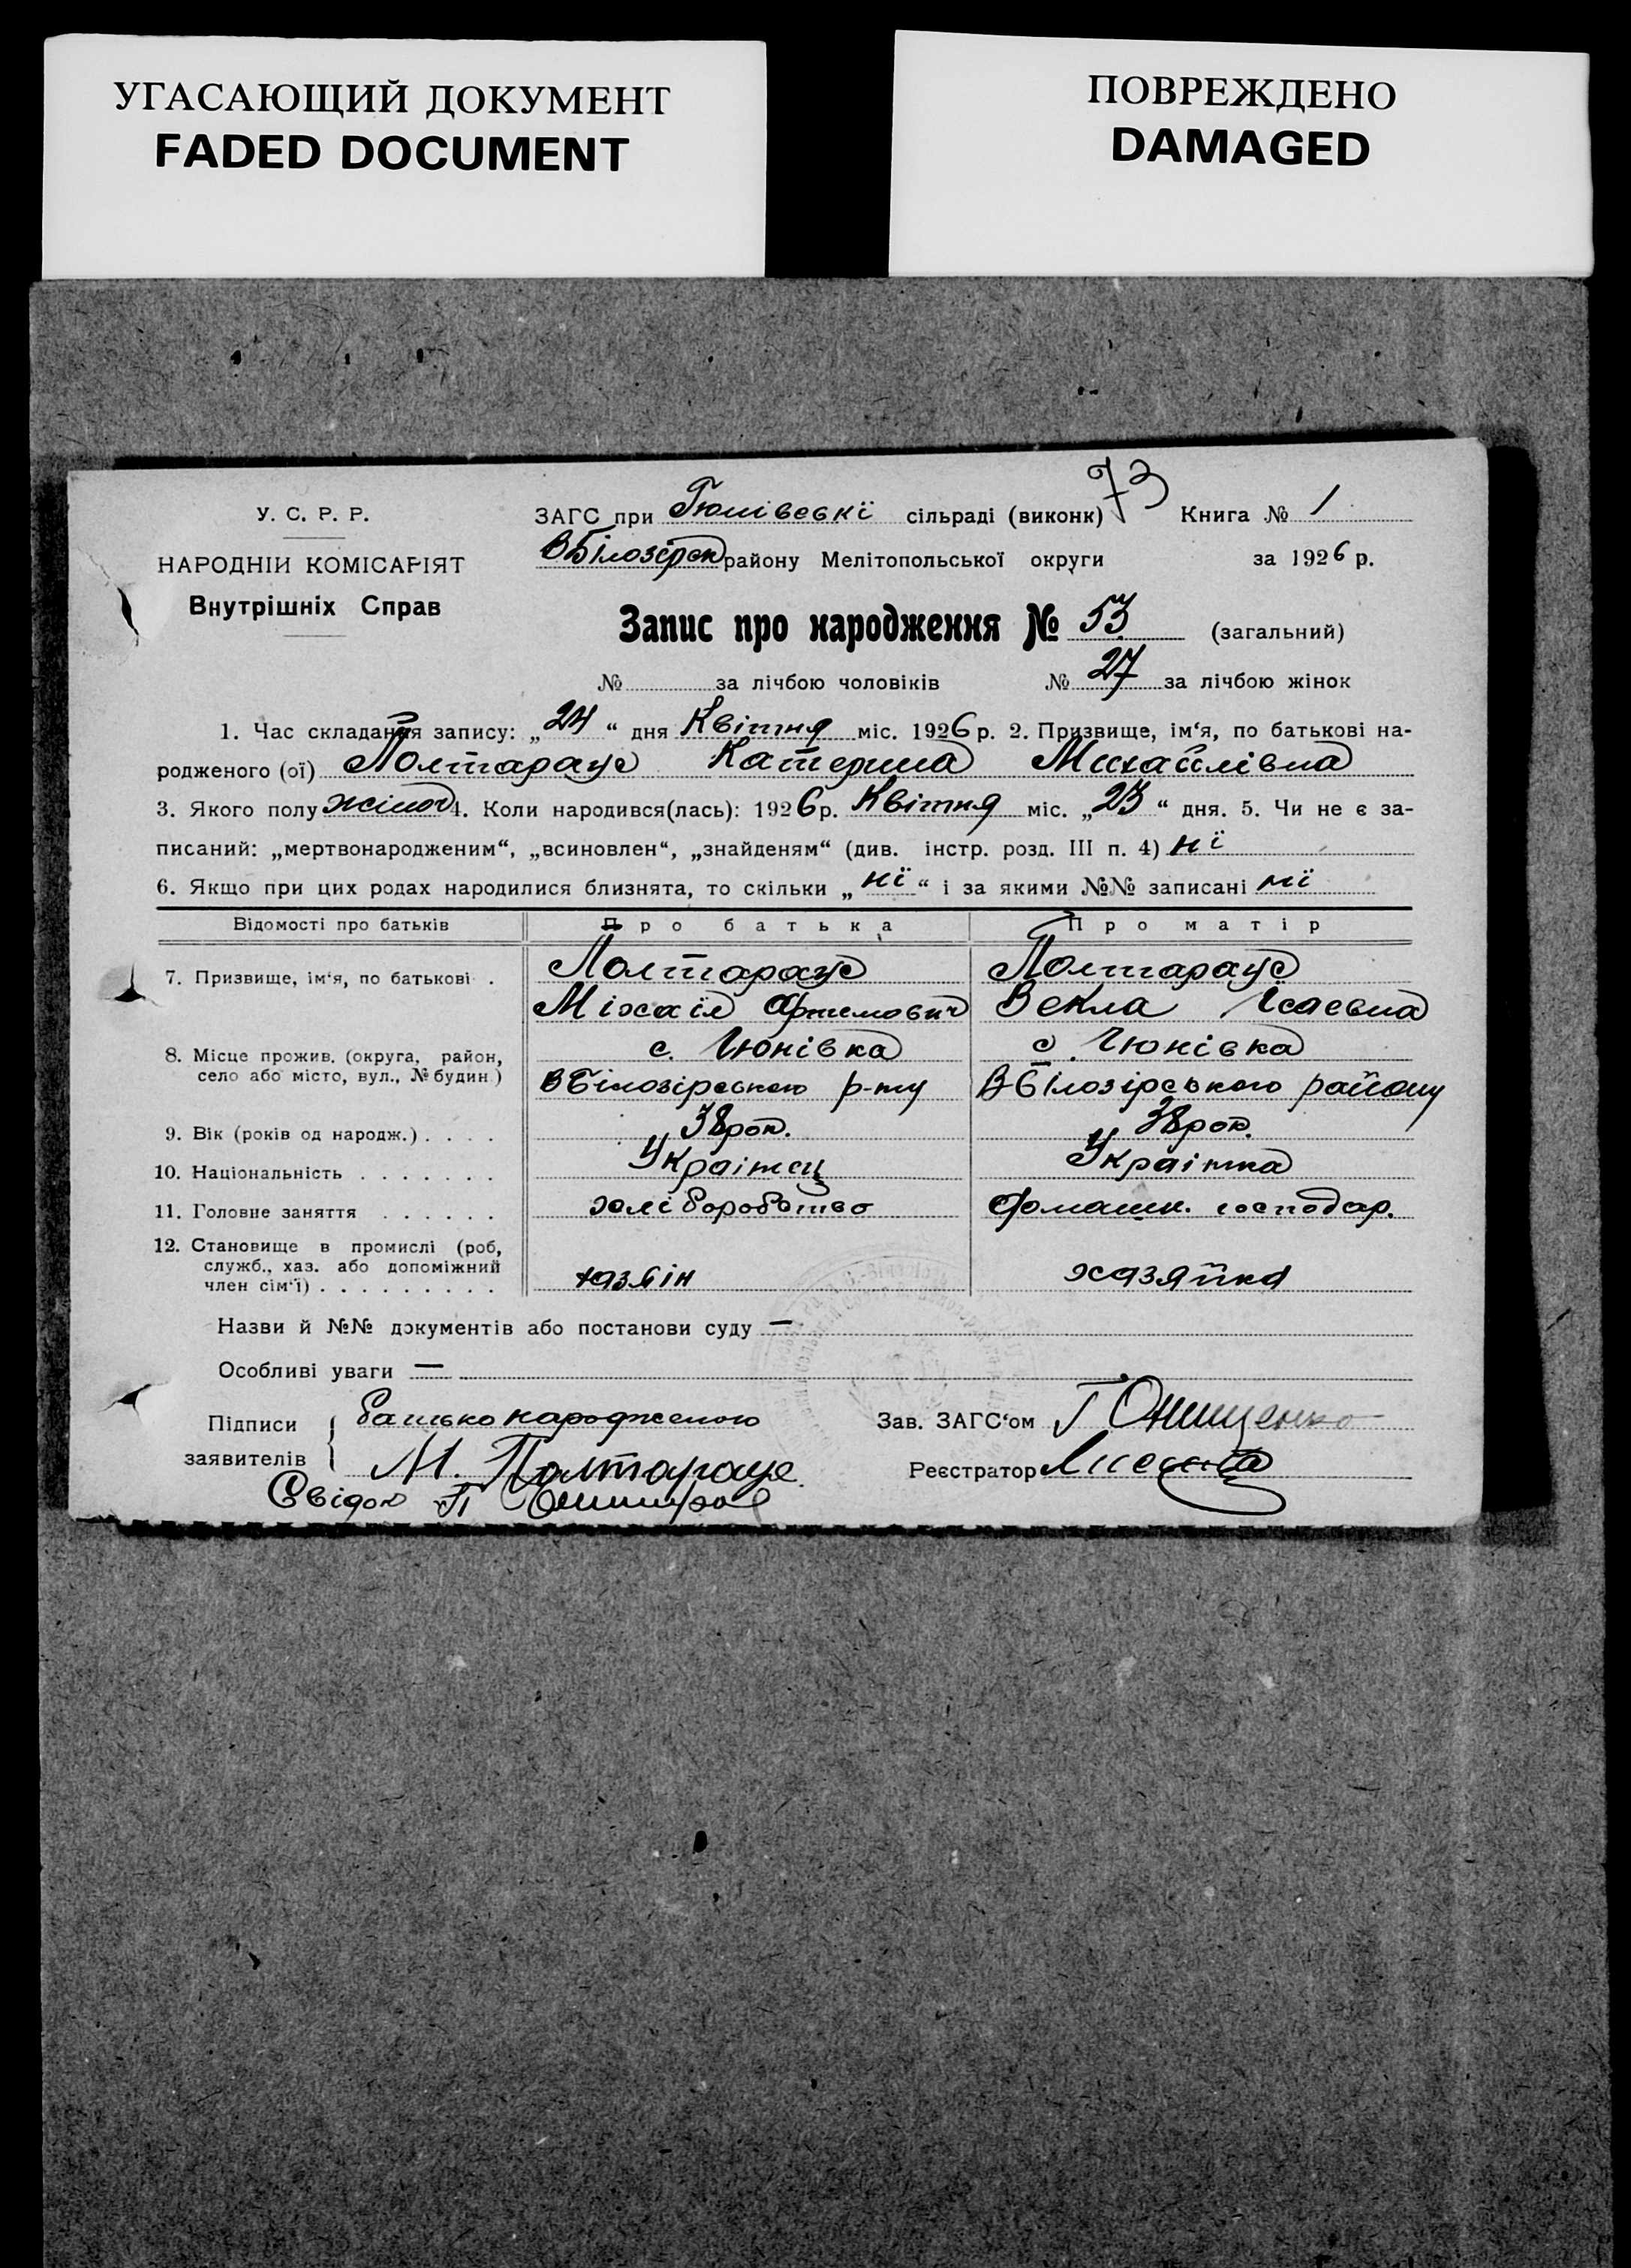 УГАСАЮЩИЙ ДОКУМЕНТ
FADED DOCUMENT
ПОВРЕЖДЕНО
DAMAGED
73
У. С. Р. Р.
ЗАГС при Гюнівські сільраді (виконк) Книга № 1
НАРОДНІЙ КОМІСАРІЯТ
ВБілозірськ району Мелітопольської округи за 1926 р.
Внутрішніх Справ
Запис про народження № 53 (загальний)
№ за лічбою чоловіків № 27 за лічбою жінок
1. Час складання запису: „24“ дня Квітня міс. 1926 р. 2. Призвище, ім‘я, по батькові на-
родженого (ої) Полтараце Катерина Михайлівна
3. Якого полу жіноч 4. Коли народився(лась): 1926 р. Квітня міс. „23“ дня. 5. Чи не є за-
писаний: „мертвонародженим“, „всиновлен“, „знайденям“ (див. інстр. розд. III п. 4) нї
6. Якщо при цих родах народилися близнята, то скільки „нї“ і за якими №№ записані нї
Відомості про батьків Про батька Про матір
7. Призвище, ім‘я, по батькові . Полтараце Полтараце
Міхаіл Артемович Векла Ісаевна
8. Місце прожив. (округа, район, с. Гюнівка с. Гюнівка
село або місто, вул., № будин.) ВБілозірського р-ну ВБілозірського району
9. Вік (років од народж.) . . . . 38 рок. 38 рок.
10. Національність . . . . . . . Украінец Украінка
11. Головне заняття . . . . . . хліборобство домашн. господар.
12. Становище в промислі (роб,
служб., хаз. або допоміжний
член сім‘ї) . . . . . . . . . хазяін хазяйка
Назви й №№ документів або постанови суду —
Особливі уваги —
Підписи батько народженого Зав. ЗАГС‘ом Г Онищенко
заявителів М. Полтараце Реєстратор
Свідок П